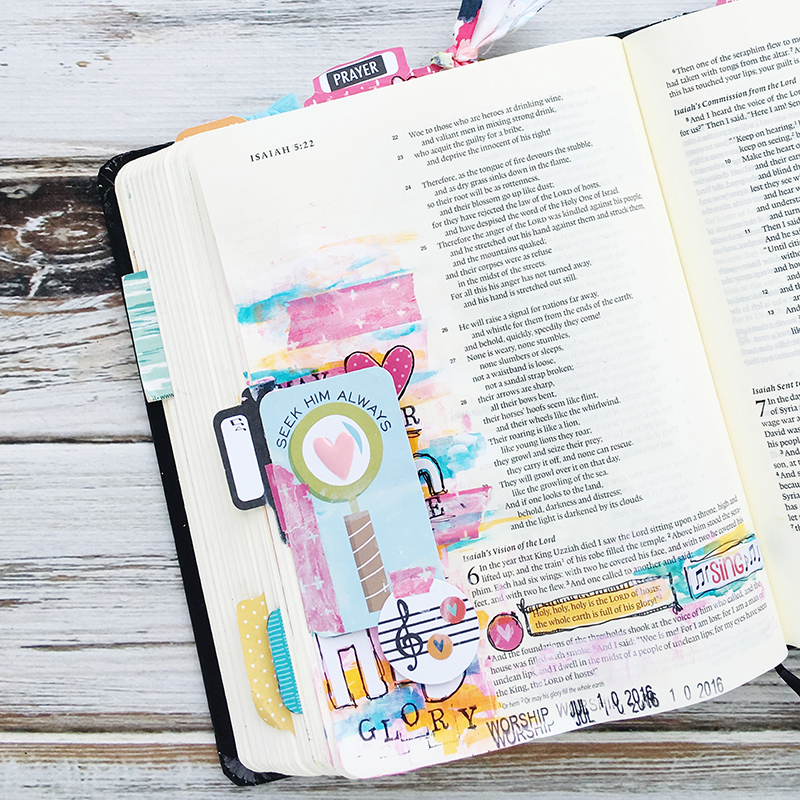 PRAYER
ISAIAH 5:22
22 Woe to those who are heroes at drinking wine,
and valiant men in mixing strong drink,
23 who acquit the guilty for a bribe,
and deprive the innocent of his right!
24 Therefore, as the tongue of fire devours the stubble,
and as dry grass sinks down in the flame,
so their root will be as rottenness,
and their blossom go up like dust;
for they have rejected the law of the LORD of hosts,
and have despised the word of the Holy One of Israel.
25 Therefore the anger of the LORD was kindled against his people,
and he stretched out his hand against them and struck them,
and the mountains quaked;
and their corpses were as refuse
in the midst of the streets.
For all this his anger has not turned away,
and his hand is stretched out still.
26 He will raise a signal for nations far away,
and whistle for them from the ends of the earth;
and behold, quickly, speedily they come!
27 None is weary, none stumbles,
none slumbers or sleeps,
not a waistband is loose,
not a sandal strap broken;
28 their arrows are sharp,
all their bows bent,
their horses' hoofs seem like flint,
and their wheels like the whirlwind.
29 Their roaring is like a lion,
like young lions they roar;
they growl and seize their prey;
they carry it off, and none can rescue.
30 They will growl over it on that day,
like the growling of the sea.
And if one looks to the land,
behold, darkness and distress;
and the light is darkened by its clouds.
SEEK HIM ALWAYS
Isaiah's Vision of the Lord
6 In the year that King Uzziah died I saw the Lord sitting upon a throne, high and
lifted up; and the train¹ of his robe filled the temple. ² Above him stood the sera-
phim. Each had six wings: with two he covered his face, and with two he covered his
feet, and with two he flew. ³ And one called to another and said:
SING
Holy, holy, holy is the LORD of hosts;
the whole earth is full of his glory!
⁴ And the foundations of the thresholds shook at the voice of him who called, and the
house was filled with smoke. ⁵ And I said: "Woe is me! For I am lost; for I am a man of
unclean lips, and I dwell in the midst of a people of unclean lips; for my eyes have seen
the King, the LORD of hosts!"
Or may his glory fill the whole earth
GLORY
WORSHIP
WORSHIP
JUL 10 2016
10 2016
⁶ Then one of the seraphim flew to me
had taken with tongs from the altar. ⁷
this has touched your lips; your guilt is
Isaiah's Commission from the Lord
⁸ And I heard the voice of the Lord
for us?" Then I said, "Here I am! Sen
"'Keep on hearing,
keep on seeing,
10 Make the heart
and their
and blind
lest they see w
and hear
and understa
and turn
11 Then I said
And he said
"Until citie
witho
and hou
and th
12 and
13 And
Isaiah Sent to
7 In the da
of Syria